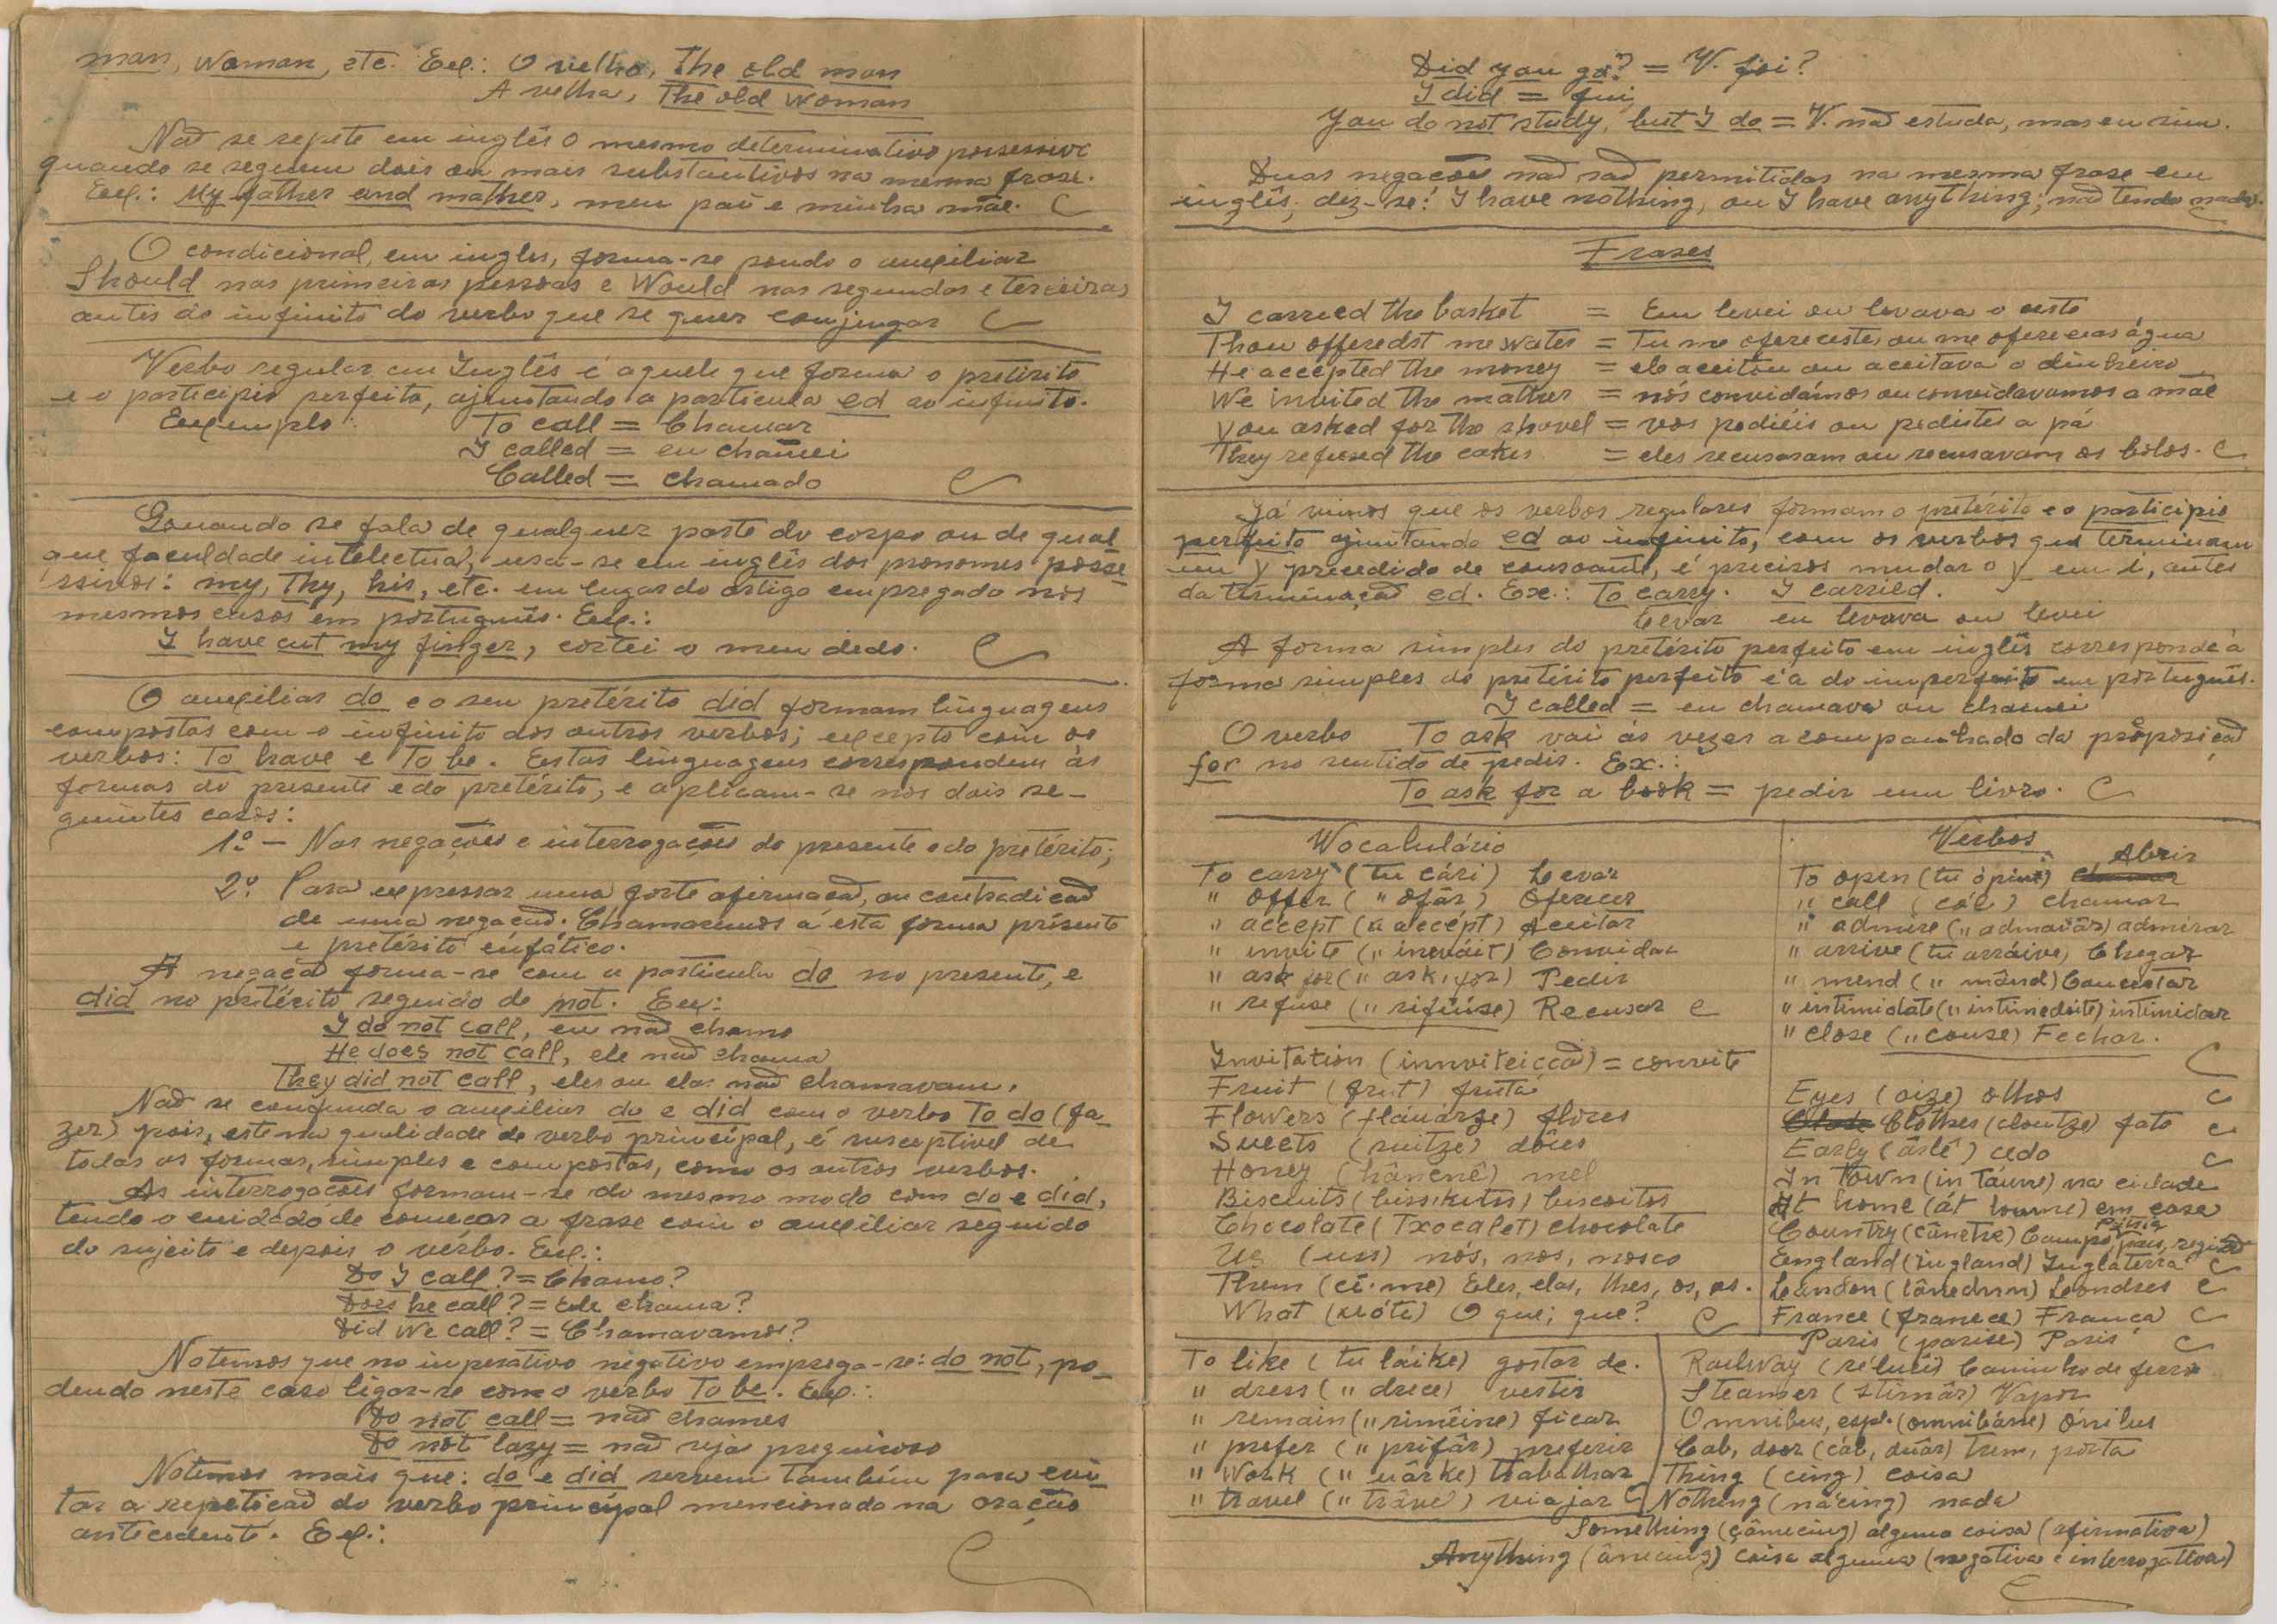 man, woman, etc. Ex.: O velho, The old man
A velha, The old woman
Não se repete em inglês o mesmo determinativo possessivo
quando se seguem dois ou mais substantivos na mesma frase.
Ex.: My father and mother, meu pai e minha mãe.
O condicional, em ingles, forma-se pondo o auxiliar
Should nas primeiras pessoas e Would nas segundas e terceiras
antes do infinito do verbo que se quer conjugar
Verbo regular em Inglês é aquele que forma o pretérito
e o participio perfeito, ajuntando a particula ed ao infinito.
Exemplo: To call = Chamar
I called = eu chamei
Called = chamado
Quando se fala de qualquer parte do corpo ou de qual-
que faculdade intelectual, usa-se em inglês dos pronomes posse-
ssivos: my, thy, his, etc. em lugar do artigo empregado nos
mesmos casos em português. Ex.:
I have cut my finger, cortei o meu dedo.
O auxiliar do e o seu pretérito did formam linguagens
compostas com o infinito dos outros verbos; excepto com os
verbos: To have e To be. Estas linguagens correspondem às
formas do presente e do pretérito, e aplicam-se nos dois se-
guintes casos:
1º - Nas negações e interrogações do presente e do pretérito;
2º Para expressar uma forte afirmação, ou contradição
de uma negação. Chamaremos a esta forma presente
e pretérito enfático.
A negação forma-se com a particula do no presente, e
did no pretérito seguido de not. Ex:
I do not call, eu não chamo
He does not call, ele não chama
They did not call, eles ou elas não chamavam.
Não se confunda o auxiliar do e did com o verbo To do (fa-
zer) pois, este na qualidade de verbo principal, é susceptivel de
todas as formas, simples e compostas, como os outros verbos.
As interrogações formam-se do mesmo modo com do e did,
tendo o cuidado de começar a frase com o auxiliar seguido
do sujeito e depois o verbo. Ex.:
Do I call? = Chamo?
Does he call? = Ele chama?
Did we call? = Chamavamos?
Notemos que no imperativo negativo emprega-se: do not, po-
dendo neste caso ligar-se com o verbo To be. Ex.:
Do not call = não chames
Do not lazy = não seja preguiçoso
Notemos mais que: do e did servem também para evi-
tar a repetição do verbo principal mencionado na oração
antecedente. Ex.:
Did you go? = V. foi?
I did = fui
You do not study, but I do = V. não estuda, mas eu sim.
Duas negações não são permitidas na mesma frase em
inglês; diz-se: I have nothing, ou I have anything; não tendo nada.
Frases
I carried the basket = Eu levei ou levava o cesto
Thou offeredst me water = Tu me ofereceste, ou me oferecias água
He accepted the money = ele aceitou ou aceitava o dinheiro
We invited the mother = nós convidámos ou convidavamos a mãe
You asked for the shovel = vos pedieis ou pedistes a pá
They refused the cakes = eles recusaram ou recusavam os bolos.
Já vimos que os verbos regulares formam o pretérito e o participio
perfeito ajuntando ed ao infinito, com os verbos que terminam
em y precedido de consoante, é preciso mudar o y em i, antes
da terminação ed. Ex.: To carry. I carried.
Levar eu levava ou levei
A forma simples do pretérito perfeito em inglês corresponde à
forma simples do pretérito perfeito e à do imperfeito em português.
I called = eu chamava ou chamei
O verbo To ask vai ás vezes acompanhado da preposição
for no sentido de pedir. Ex.:
To ask for a book = pedir um livro.
Wocabulário
To carry (tu cári) Levar
" offer (" ofâr) Oferecer
" accept (" accépt) Aceitar
" invite (" inváit) Convidar
" ask for (" ask, fór) Pedir
" refuse (" rifiúse) Recusar
Invitation (innviteicão) = convite
Fruit (frut) fruta
Flowers (fláuarze) flores
Sweets (suitze) dôces
Honey (hânenê) mel
Biscuits (bissikutss) biscoitos
Chocolate (Txocalet) chocolate
Us (uss) nós, nos, nosco
Them (cê.me) Eles, elas, lhes, os, as.
What (uóte) O que; que?
Verbos
Abrir
To open (tu ópine)
" call (cól) chamar
" admire (" admaiâr) admirar
" arrive (tu arráive) Chegar
" mend (" mând) Concertar
" intimidate (" intimedeite) intimidar
" close (" couse) Fechar.
Eyes (aize) olhos
Clothes (cloutze) fato
Early (ârlê) cedo
In town (in táune) na cidade
At home (át houme) em casa
Country (cânetre) Campo, Pátria, pais, região
England (ingland) Inglaterra
London (lânedun) Londres
France (franece) França
Paris (parise) Paris
To like (tu láike) gostar de.
" dress (" drece) vestir
" remain (" rimêine) ficar
" prefer (" prifâr) preferir
" Work (" uârke) trabalhar
" travel (" trávél) viajar
Railway (rélueis) Caminho de ferro
Steamer (stimâr) Vapor
Omnibus, esp. (omnibâsse) ónibus
Cab, door (cáb, duâr) trem, porta
Thing (cing) coisa
Nothing (nácing) nada
Something (çâmecing) alguma coisa (afirmativa)
Anything (ânecing) coisa alguma (negativa e interrogativa)